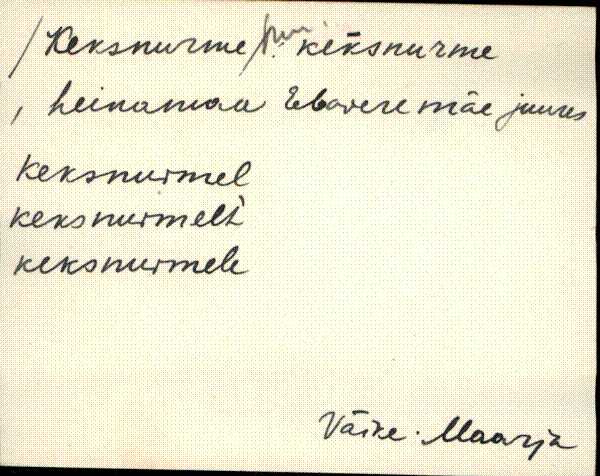 / Keksnurme / keksnurme
, heinamaa Ebavere mäe juures
keksnurmel
keksnurmelt
keksnurmele
Väike-Maarja